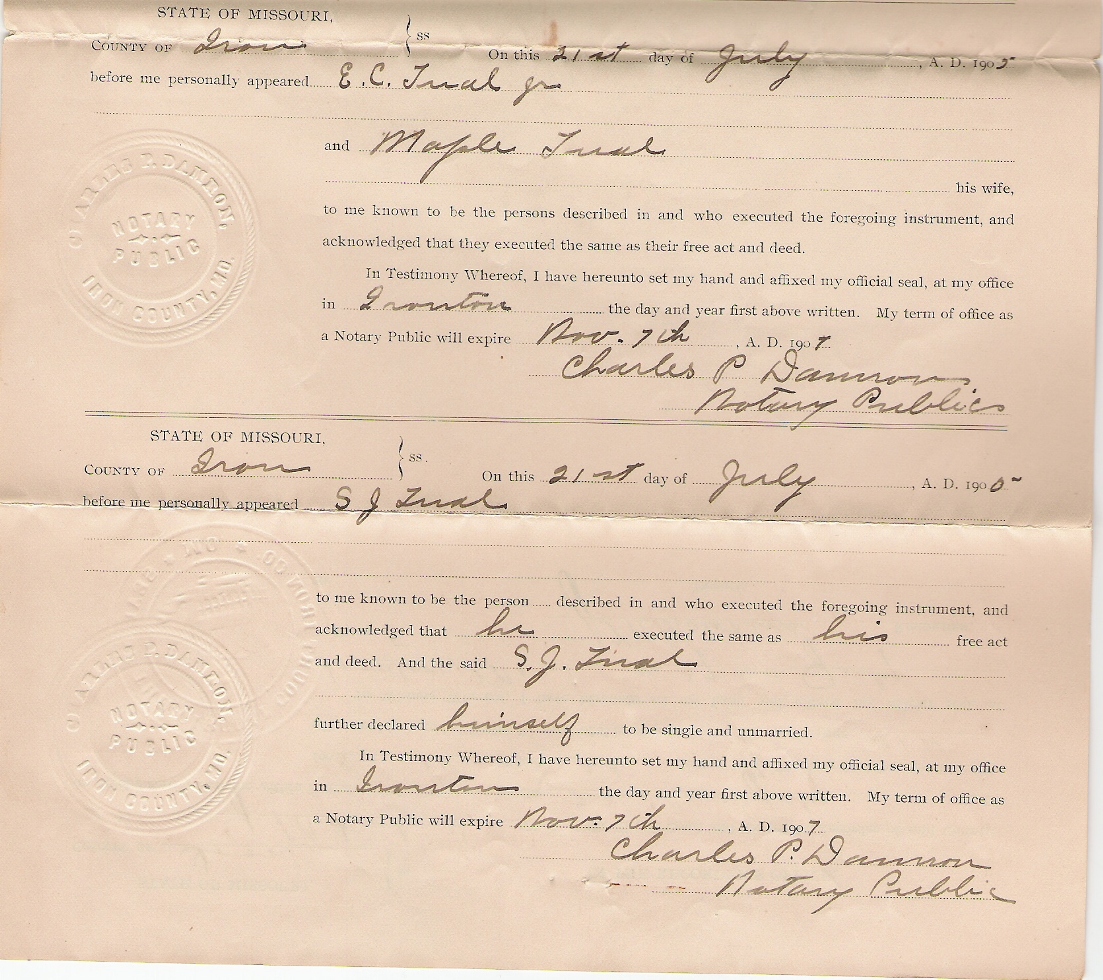 STATE OF MISSOURI,
COUNTY OF Iron } ss On this 21st day of July, A. D. 1905
before me personally appeared E. C. Tual Jr
and Maple Tual
his wife,
to me known to be the persons described in and who executed the foregoing instrument, and
acknowledged that they executed the same as their free act and deed.
In Testimony Whereof, I have hereunto set my hand and affixed my official seal, at my office
in Ironton the day and year first above written. My term of office as
a Notary Public will expire Nov. 7th, A. D. 1907.
Charles P Damron
Notary Public
CHARLES P. DAMRON,
NOTARY
PUBLIC
IRON COUNTY, MO.
STATE OF MISSOURI,
COUNTY OF Iron } ss. On this 21st day of July, A. D. 1905
before me personally appeared S J Tual
to me known to be the person described in and who executed the foregoing instrument, and
acknowledged that he executed the same as his free act
and deed. And the said S. J. Tual
further declared himself to be single and unmarried.
In Testimony Whereof, I have hereunto set my hand and affixed my official seal, at my office
in Ironton the day and year first above written. My term of office as
a Notary Public will expire Nov. 7th, A. D. 1907.
Charles P. Damron
Notary Public
CHARLES P. DAMRON,
NOTARY
PUBLIC
IRON COUNTY, MO.